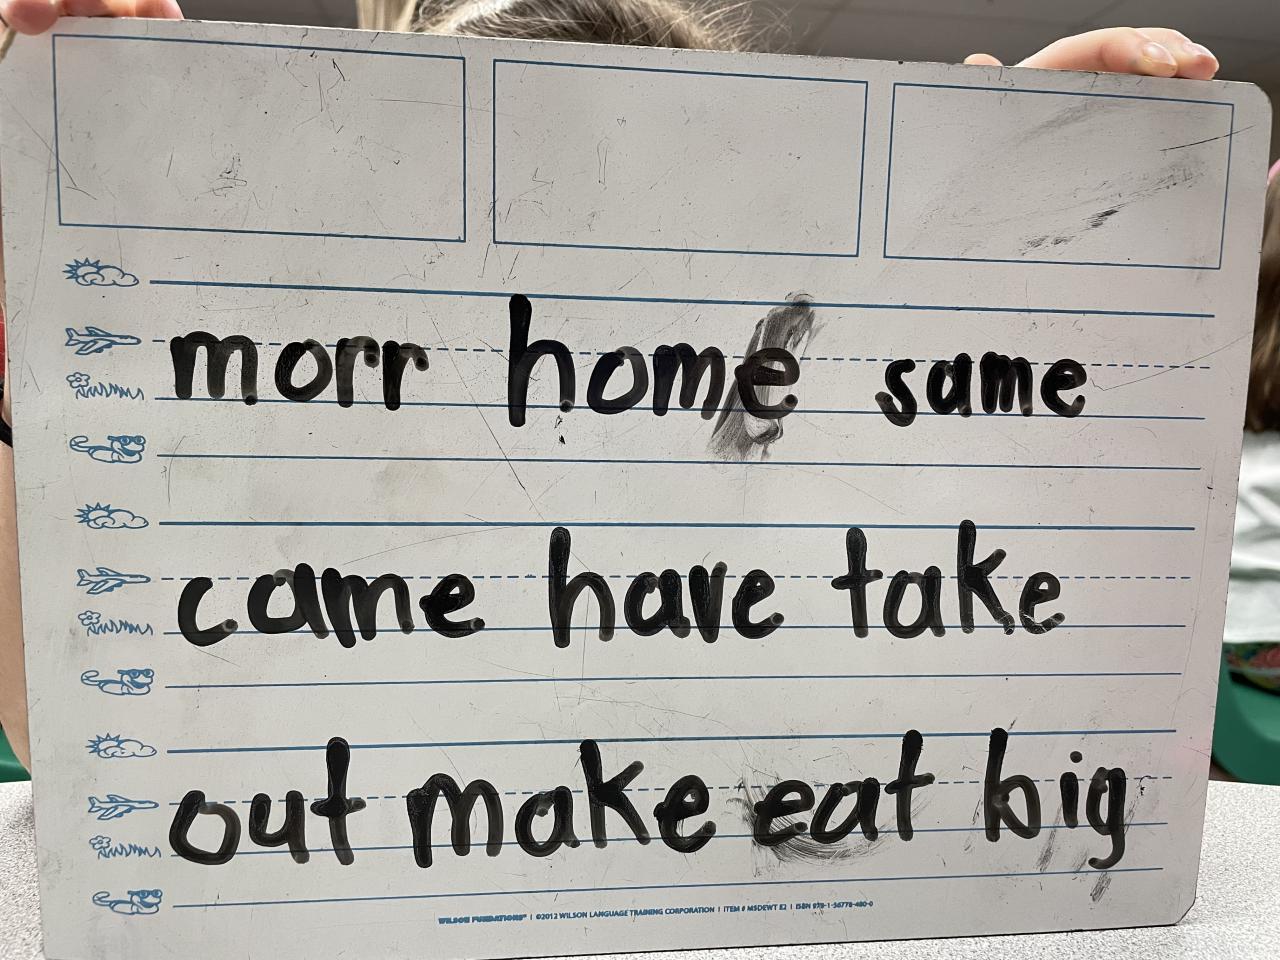 morr home same
came have take
out make eat big
WILSON FUNDATIONS® | ©2012 WILSON LANGUAGE TRAINING CORPORATION | ITEM # MSDEWT E2 | ISBN 978-1-56778-480-0